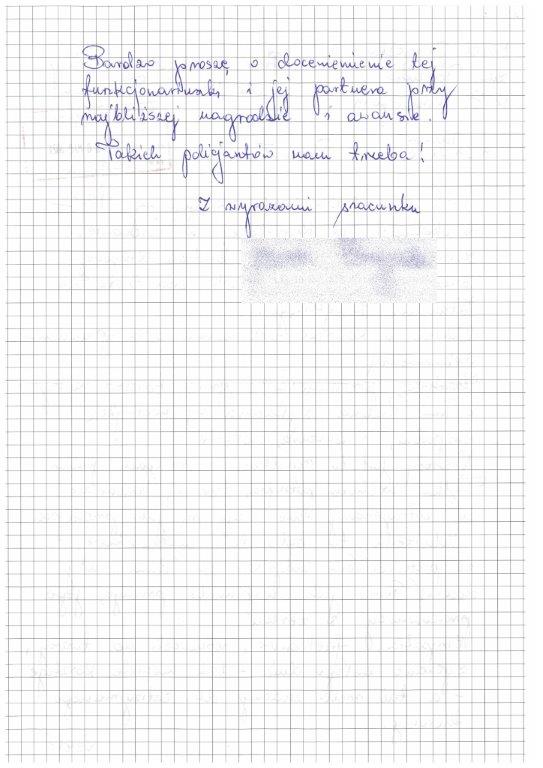 Bardzo proszę o docenienienie tej
funkcjonariuszki i jej partnera przy
najbliższej nagrodzie i awansie.
Takich policjantów nam trzeba!
Z wyrazami szacunku